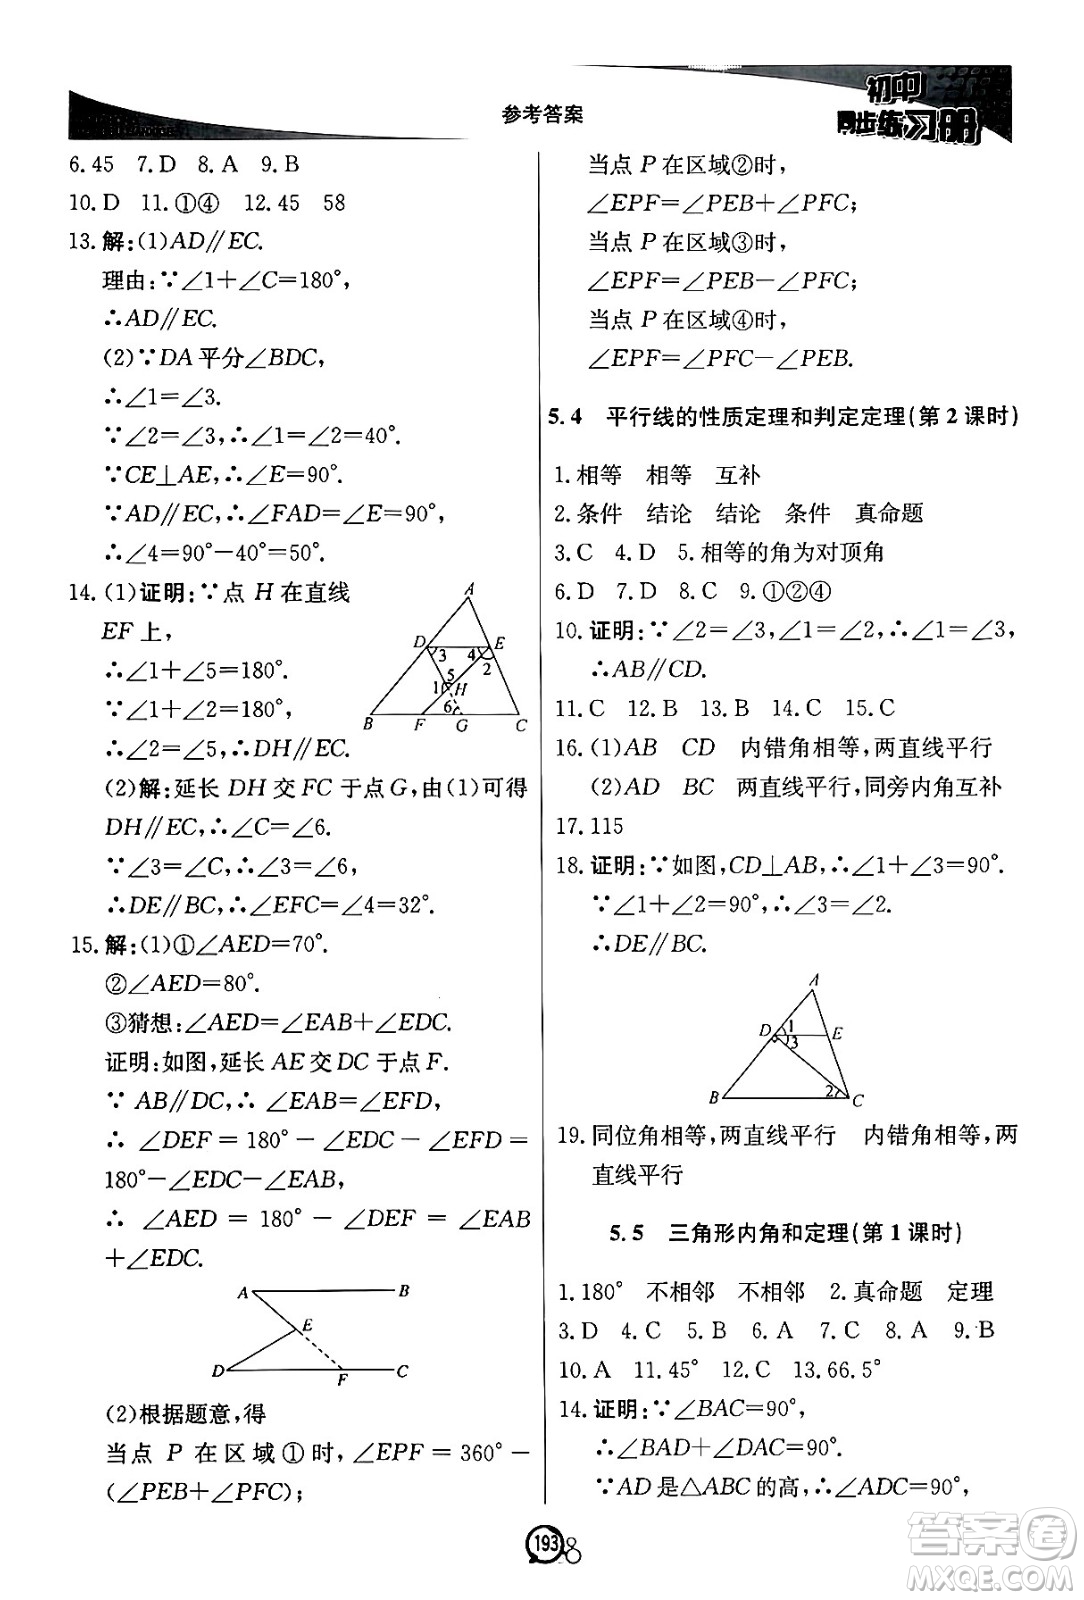 参考答案
初中
同步练习册
6.45 7.D 8.A 9.B
10.D 11.①④ 12.45 58
13.解:(1)AD∥EC.
理由:∵∠1+∠C=180°,
∴AD∥EC.
(2)∵DA平分∠BDC,
∴∠1=∠3.
∵∠2=∠3,∴∠1=∠2=40°.
∵CE⊥AE,∴∠E=90°.
∵AD∥EC,∴∠FAD=∠E=90°,
∴∠4=90°-40°=50°.
14.(1)证明:∵点H在直线
EF上,
∴∠1+∠5=180°.
∵∠1+∠2=180°,
∴∠2=∠5,∴DH∥EC.
A
D
3
4
E
2
5
1
H
6
B
F
G
C
(2)解:延长DH交FC于点G,由(1)可得
DH∥EC,∴∠C=∠6.
∵∠3=∠C,∴∠3=∠6,
∴DE∥BC,∴∠EFC=∠4=32°.
15.解:(1)①∠AED=70°.
②∠AED=80°.
③猜想:∠AED=∠EAB+∠EDC.
证明:如图,延长AE交DC于点F.
∵AB∥DC,∴∠EAB=∠EFD,
∴∠DEF=180°-∠EDC-∠EFD=
180°-∠EDC-∠EAB,
∴∠AED=180°-∠DEF=∠EAB
+∠EDC.
A
B
E
D
F
C
(2)根据题意,得
当点P在区域①时,∠EPF=360°-
(∠PEB+∠PFC);
当点P在区域②时,
∠EPF=∠PEB+∠PFC;
当点P在区域③时,
∠EPF=∠PEB-∠PFC;
当点P在区域④时,
∠EPF=∠PFC-∠PEB.
5.4 平行线的性质定理和判定定理(第2课时)
1.相等 相等 互补
2.条件 结论 结论 条件 真命题
3.C 4.D 5.相等的角为对顶角
6.D 7.D 8.C 9.①②④
10.证明:∵∠2=∠3,∠1=∠2,∴∠1=∠3,
∴AB∥CD.
11.C 12.B 13.B 14.C 15.C
16.(1)AB CD 内错角相等,两直线平行
(2)AD BC 两直线平行,同旁内角互补
17.115
18.证明:∵如图,CD⊥AB,∴∠1+∠3=90°.
∵∠1+∠2=90°,∴∠3=∠2.
∴DE∥BC.
A
D
1
3
E
B
2
C
19.同位角相等,两直线平行 内错角相等,两
直线平行
5.5 三角形内角和定理(第1课时)
1.180° 不相邻 不相邻 2.真命题 定理
3.D 4.C 5.B 6.A 7.C 8.A 9.B
10.A 11.45° 12.C 13.66.5°
14.证明:∵∠BAC=90°,
∴∠BAD+∠DAC=90°.
∵AD是△ABC的高,∴∠ADC=90°,
193
答案圈
MXQE.COM